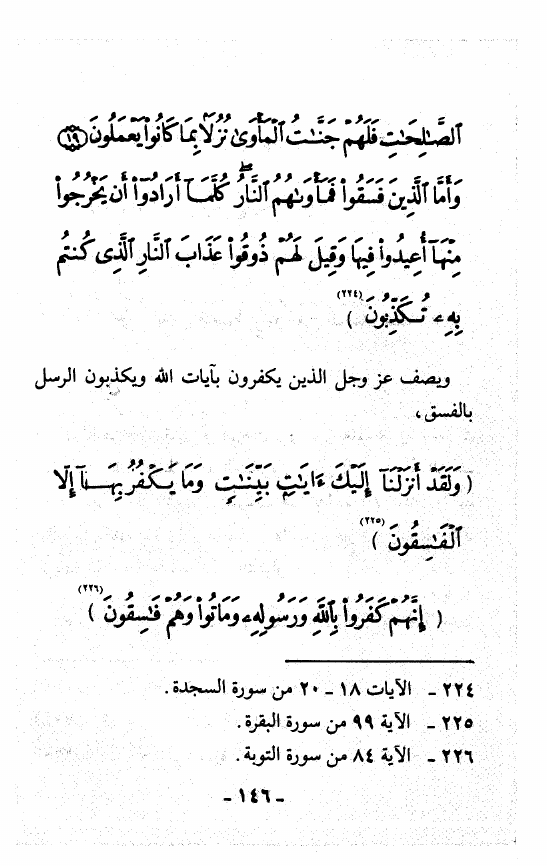 ٱلصَّٰلِحَٰتِ فَلَهُمْ جَنَّٰتُ ٱلْمَأْوَىٰ نُزُلًۢا بِمَا كَانُوا۟ يَعْمَلُونَ ﴿١٩﴾
وَأَمَّا ٱلَّذِينَ فَسَقُوا۟ فَمَأْوَىٰهُمُ ٱلنَّارُ ۖ كُلَّمَآ أَرَادُوٓا۟ أَن يَخْرُجُوا۟
مِنْهَآ أُعِيدُوا۟ فِيهَا وَقِيلَ لَهُمْ ذُوقُوا۟ عَذَابَ ٱلنَّارِ ٱلَّذِى كُنتُم
بِهِۦ تُكَذِّبُونَ (٢٢٤) )
ويصف عز وجل الذين يكفرون بآيات الله ويكذبون الرسل
بالفسق،
( وَلَقَدْ أَنزَلْنَآ إِلَيْكَ ءَايَٰتٍۭ بَيِّنَٰتٍ وَمَا يَكْفُرُ بِهَآ إِلَّا
ٱلْفَٰسِقُونَ (٢٢٥) )
( إِنَّهُمْ كَفَرُوا۟ بِٱللَّهِ وَرَسُولِهِۦ وَمَاتُوا۟ وَهُمْ فَٰسِقُونَ (٢٢٦) )
٢٢٤ - الآيات ١٨ - ٢٠ من سورة السجدة.
٢٢٥ - الآية ٩٩ من سورة البقرة.
٢٢٦ - الآية ٨٤ من سورة التوبة.
- ١٤٦ -